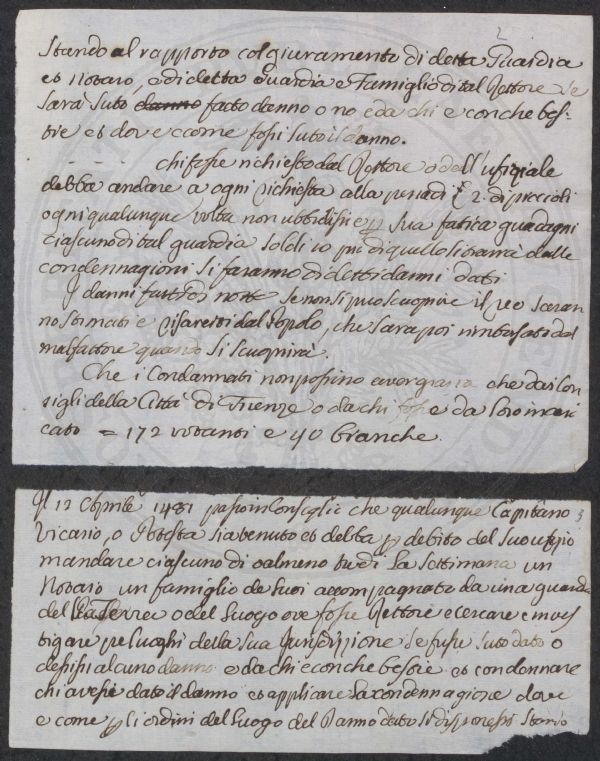 2
Stando al rapporto col giuramento di detta Guardia
et Notaro, o di detta Guardia e Famiglio di tal Rettore se
sarà suto danno fatto danno o no e da chi e con che bes-
tie et dove e come fosse suto il danno.
chi fosse richiesto dal Rettore o dall'ufiziale
debba andare a ogni richiesta alla pena di £ 2. di piccioli
ogni qualunque volta non ubbidisse e p sua fatica guadagni
ciascuno di tal guardia soldi 10 più di quello si trarrà dalle
condennagioni si faranno di detti danni dati
I danni fatti di notte se non si può scuoprire il reo saran
no stimati e rifareiti dal Popolo, che sarà poi rimborsato dal
malfattore quando si scuoprirà.
Che i Condannati non possino aver grazia che dai Con
sigli della Città di Firenze o da chi fosse da loro inari
cato = 172 votanti e 40 bianche.
3
Il 12 1481 passò in Consiglio che qualunque Capitano
Vicario, o Potestà sia tenuto et debba p debito del suo ufizio
mandare ciascuno dì o almeno tre dì la settimana un
Notaro un famiglio de suoi accompagnato da una guardia
del o del Luogo ove fosse Rettore e cercare e inves
tigare pe luoghi della sua Jurisdizione se fusse suto dato o
dessisi alcuno danno e da chi e con che bestie et condennare
chi avesse dato il danno et applicare la condennagione dove
e come p li ordini del Luogo del Danno dato si disponessi stando